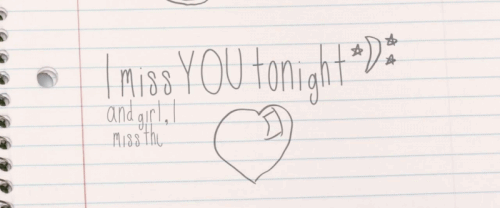 I miss YOU tonight
and girl, I
miss thi